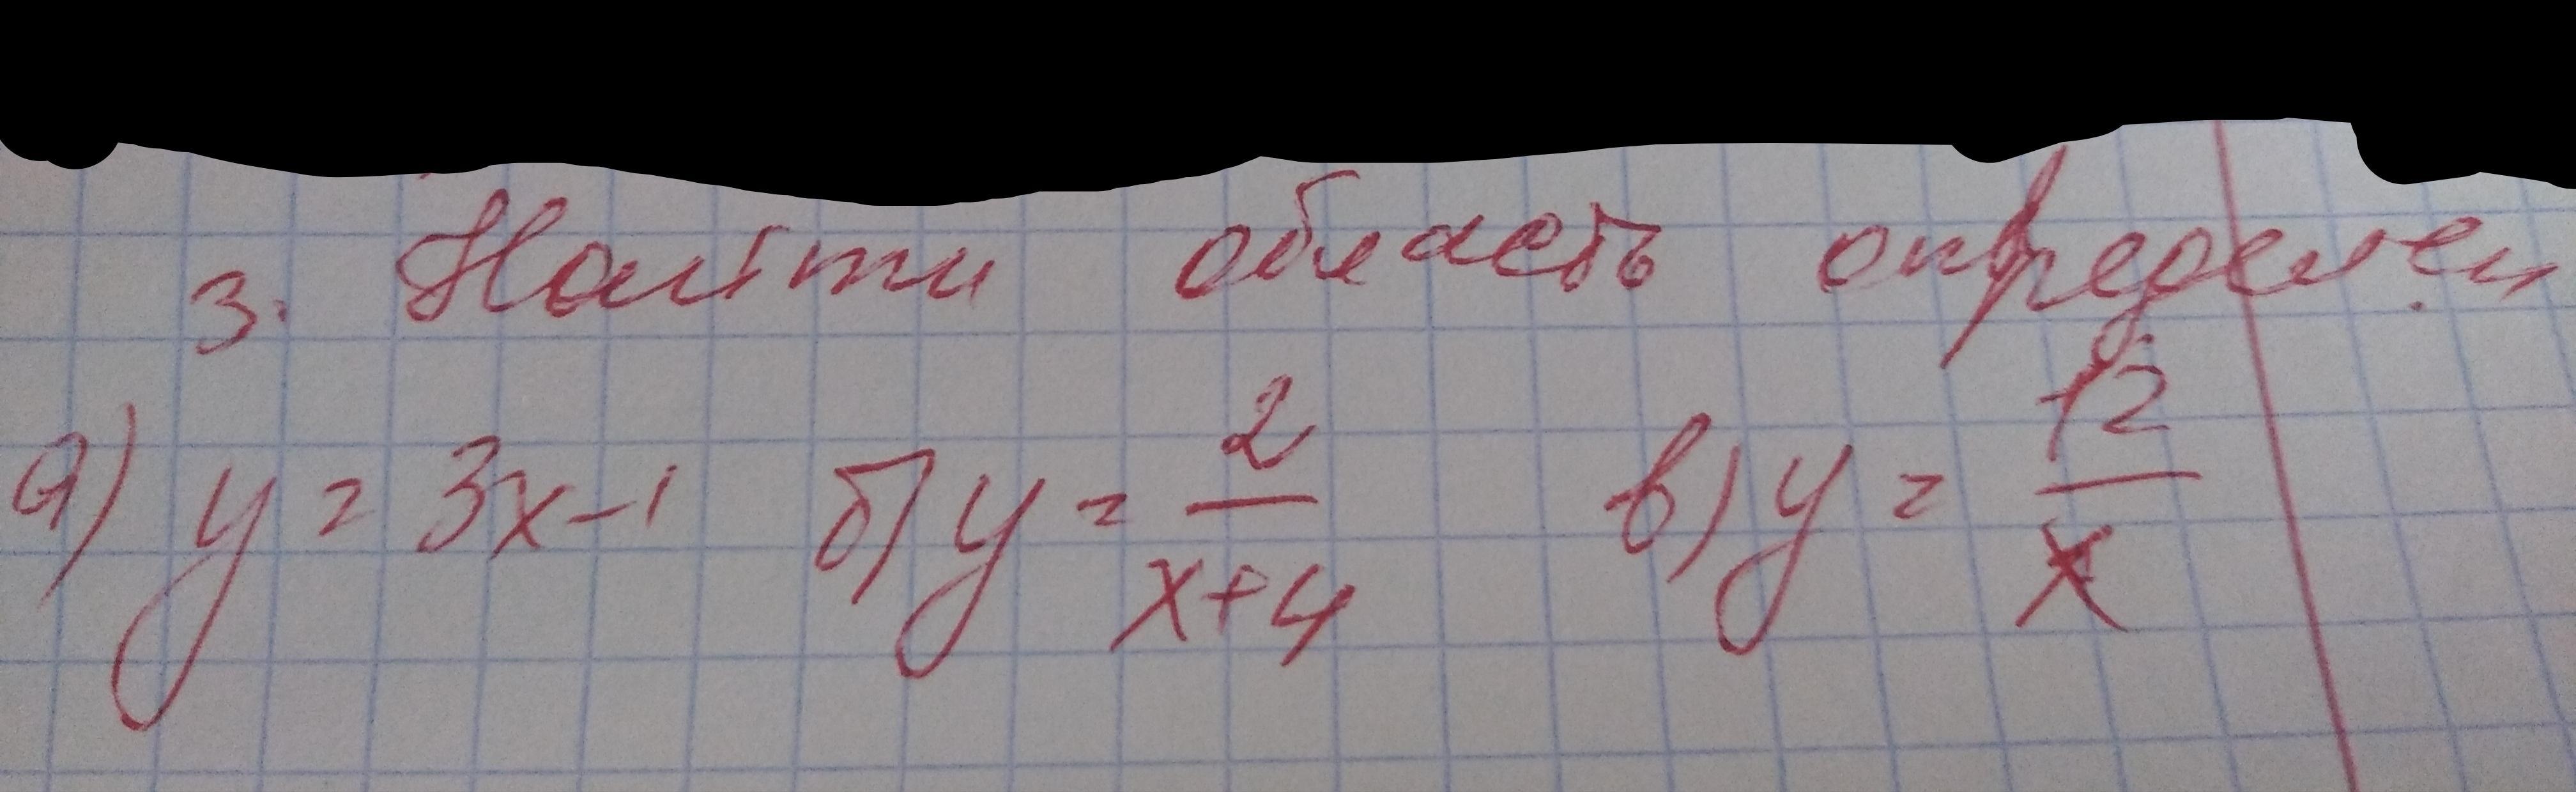 3. Найти область определен
а) y = 3x-1 б) y = 2/(x+4) в) y = 12/x